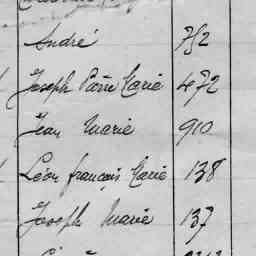 André 752
Joseph Pierre Marie 472
Jean Marie 910
Léon françois Marie 138
Joseph Marie 137